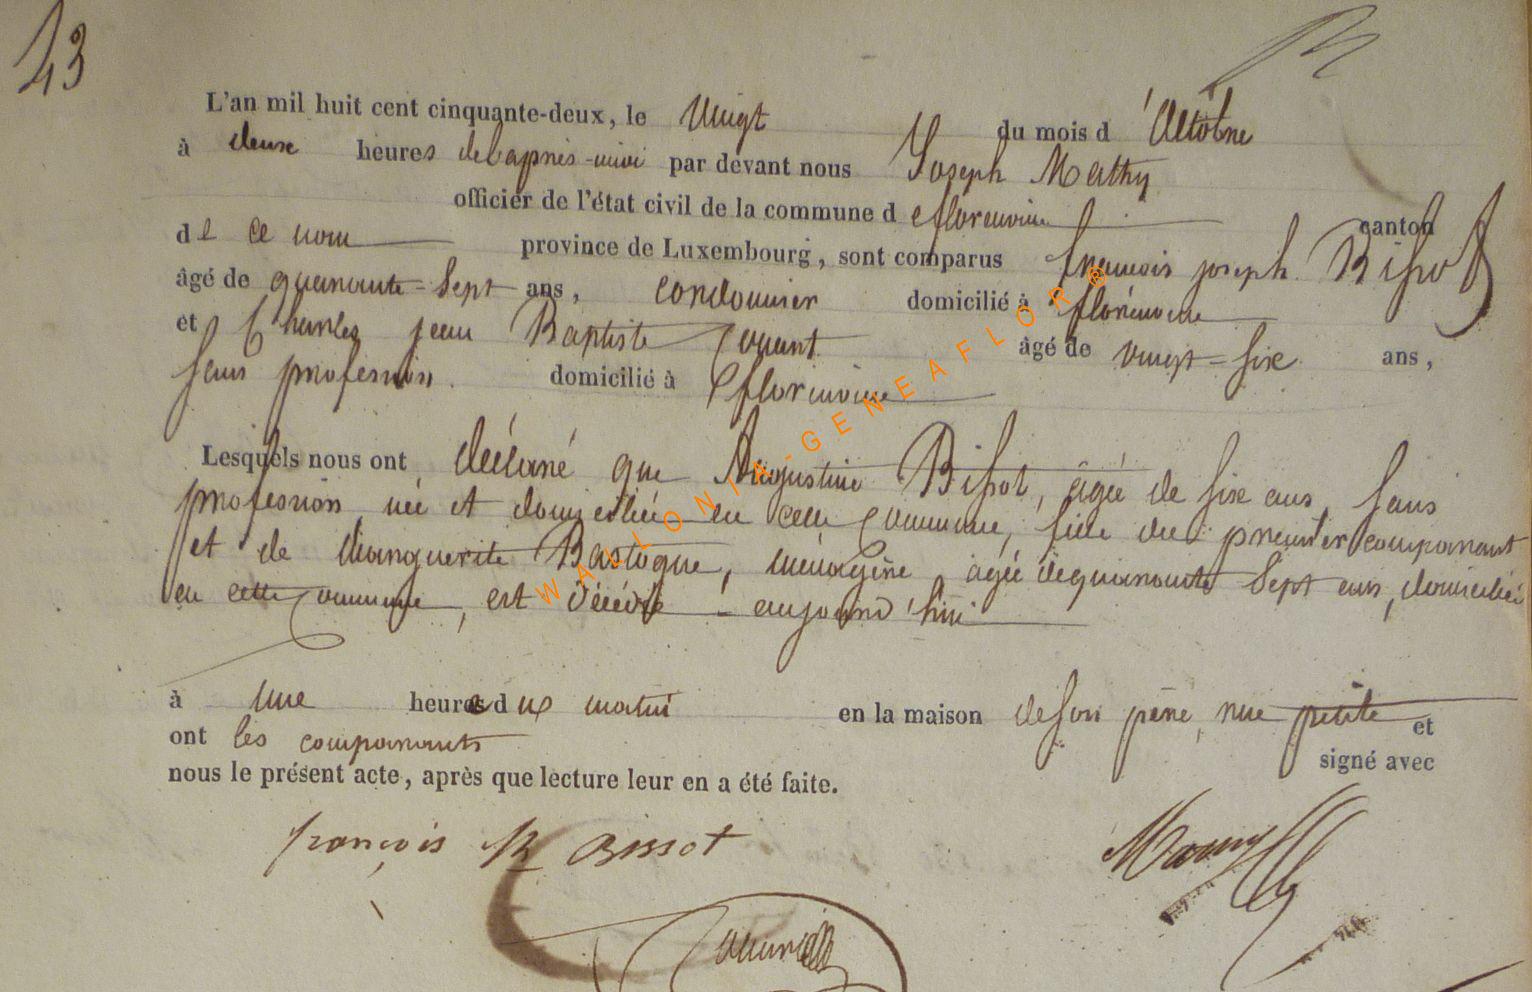 43
L'an mil huit cent cinquante-deux, le vingt du mois d'octobre
à deux heures de l'après-midi par devant nous Joseph Mathy
officier de l'état civil de la commune de florenville canton
de ce nom province de Luxembourg, sont comparus françois joseph Bissot
âgé de quarante-sept ans, cordonnier domicilié à florenville
et Charles jean Baptiste âgé de vingt-six ans,
sans profession. domicilié à florenville
Lesquels nous ont déclaré que Augustine Bissot, âgée de six ans, sans
profession née et domiciliée en cette commune, fille du premier comparant
et de Marguerite Bastogne, ménagère, agée de quarante sept ans, domiciliée
en cette commune, est décédée aujourd'hui
à une heure du matin en la maison de son père, rue petite et
ont les comparants signé avec
nous le présent acte, après que lecture leur en a été faite.
françois Bissot
WALLONIA-GENEAFLOR®